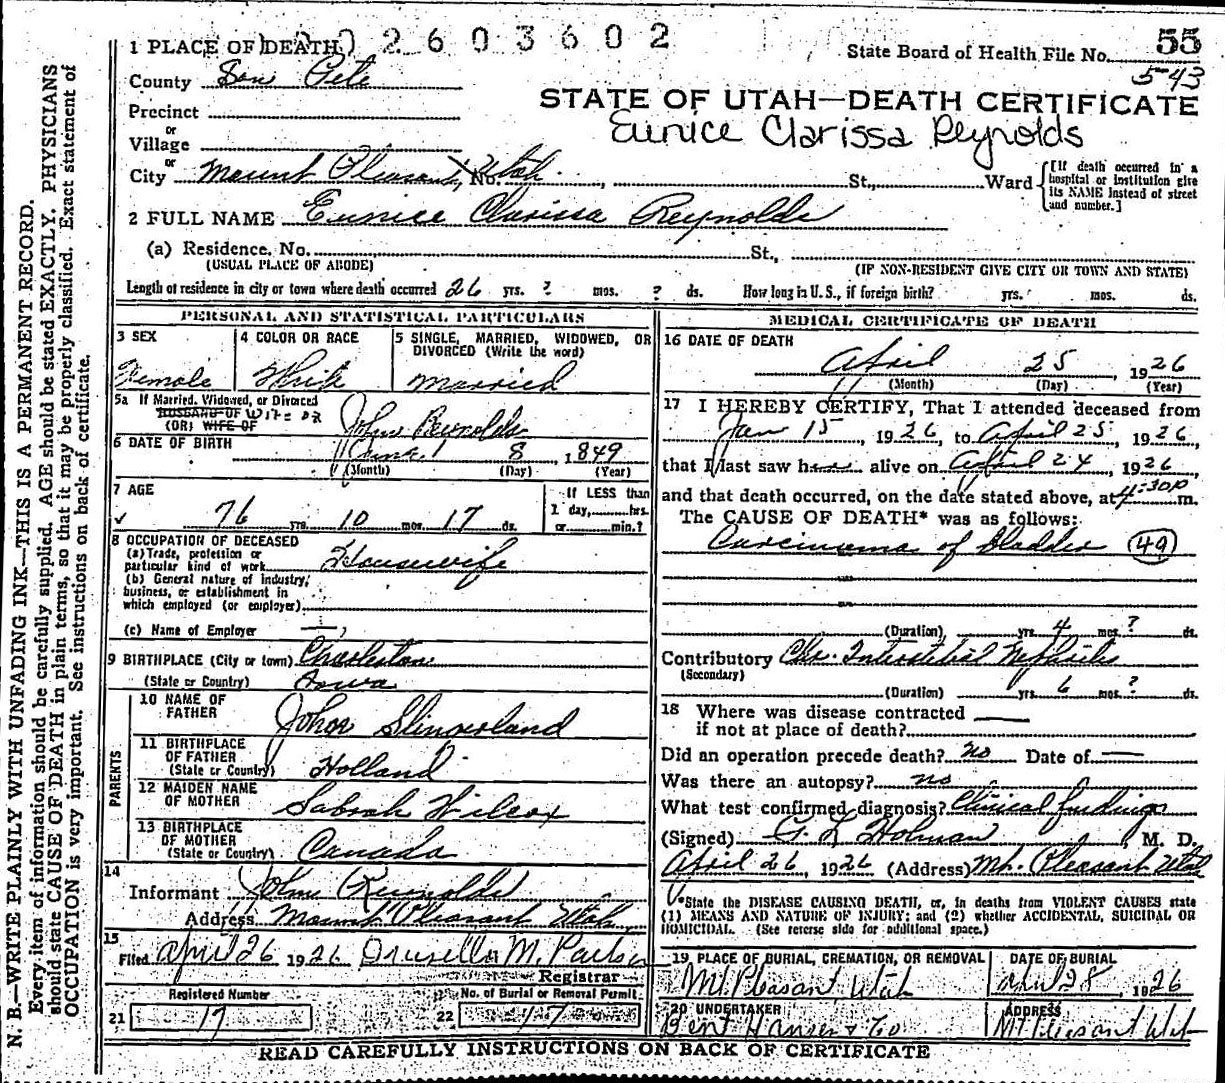 1 PLACE OF DEATH 2603602
State Board of Health File No. 55
543
County San Pete
STATE OF UTAH—DEATH CERTIFICATE
Precinct
Eunice Clarissa Reynolds
or
Village
or
City Mount Pleasant, Utah. No. St., Ward
[If death occurred in a hospital or institution give its NAME instead of street and number.]
2 FULL NAME Eunice Clarissa Reynolds
(a) Residence, No. St.,
(USUAL PLACE OF ABODE) (IF NON-RESIDENT GIVE CITY OR TOWN AND STATE)
Length of residence in city or town where death occurred 26 yrs. ? mos. ? ds. How long in U. S., if foreign birth? yrs. mos. ds.
PERSONAL AND STATISTICAL PARTICULARS
3 SEX
Female
4 COLOR OR RACE
White
5 SINGLE, MARRIED, WIDOWED, OR DIVORCED (Write the word)
Married
5a If Married, Widowed, or Divorced
HUSBAND OF Wife OR
(OR) WIFE OF John Reynolds
6 DATE OF BIRTH
June 8 1849
(Month) (Day) (Year)
7 AGE
76 yrs. 10 mos. 17 ds.
If LESS than
1 day, hrs.
or min.?
8 OCCUPATION OF DECEASED
(a) Trade, profession or
particular kind of work Housewife
(b) General nature of industry,
business, or establishment in
which employed (or employer)
(c) Name of Employer —
9 BIRTHPLACE (City or town) Charleston
(State or Country) Iowa
PARENTS
10 NAME OF
FATHER John Slingerland
11 BIRTHPLACE
OF FATHER
(State or Country) Holland
12 MAIDEN NAME
OF MOTHER Sabrah Wilcox
13 BIRTHPLACE
OF MOTHER
(State or Country) Canada
14
Informant John Reynolds
Address Mount Pleasant Utah
15
Filed April 26 1926 Drusella M.
Registrar
Registered Number
21 17
No. of Burial or Removal Permit
22 17
MEDICAL CERTIFICATE OF DEATH
16 DATE OF DEATH
April 25 1926
(Month) (Day) (Year)
17 I HEREBY CERTIFY, That I attended deceased from
Jan 15, 1926, to April 25, 1926,
that I last saw her alive on April 24, 1926
and that death occurred, on the date stated above, at 4:30P m.
The CAUSE OF DEATH* was as follows:
Carcinoma of bladder (49)
(Duration) yrs. 4 mos. ? ds.
Contributory Chr. Interstitial Nephritis
(Secondary)
(Duration) yrs. 6 mos. ? ds.
18 Where was disease contracted —
if not at place of death?
Did an operation precede death? no Date of —
Was there an autopsy? no
What test confirmed diagnosis? Clinical findings
(Signed) G. L Holman, M. D.
April 26, 1926 (Address) Mt. Pleasant Utah
*State the DISEASE CAUSING DEATH, or, in deaths from VIOLENT CAUSES state
(1) MEANS AND NATURE OF INJURY; and (2) whether ACCIDENTAL, SUICIDAL OR
HOMICIDAL. (See reverse side for additional space.)
19 PLACE OF BURIAL, CREMATION, OR REMOVAL
Mt. Pleasant, Utah
DATE OF BURIAL
April 28, 1926
20 UNDERTAKER
Bent Hansen & Co
ADDRESS
Mt Pleasant Utah
READ CAREFULLY INSTRUCTIONS ON BACK OF CERTIFICATE
N. B.—WRITE PLAINLY WITH UNFADING INK—THIS IS A PERMANENT RECORD.
Every item of information should be carefully supplied. AGE should be stated EXACTLY. PHYSICIANS
should state CAUSE OF DEATH in plain terms, so that it may be properly classified. Exact statement of
OCCUPATION is very important. See instructions on back of certificate.